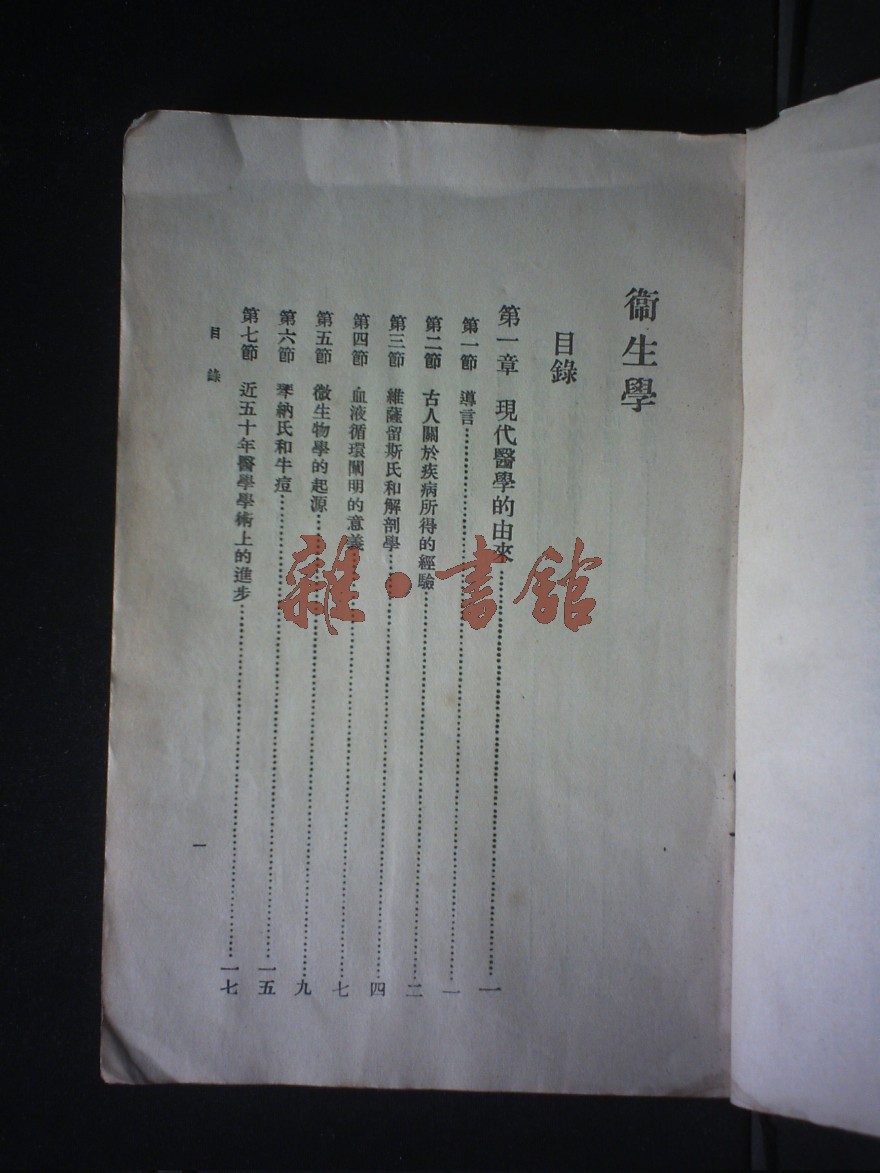 衞生學
目錄
第一章 現代醫學的由來……一
第一節 導言……一
第二節 古人關於疾病所得的經驗……二
第三節 維薩留斯氏和解剖學……四
第四節 血液循環闡明的意義……七
第五節 微生物學的起源……九
第六節 琴納氏和牛痘……一五
第七節 近五十年醫學學術上的進步……一七
目錄
一
雜·書館